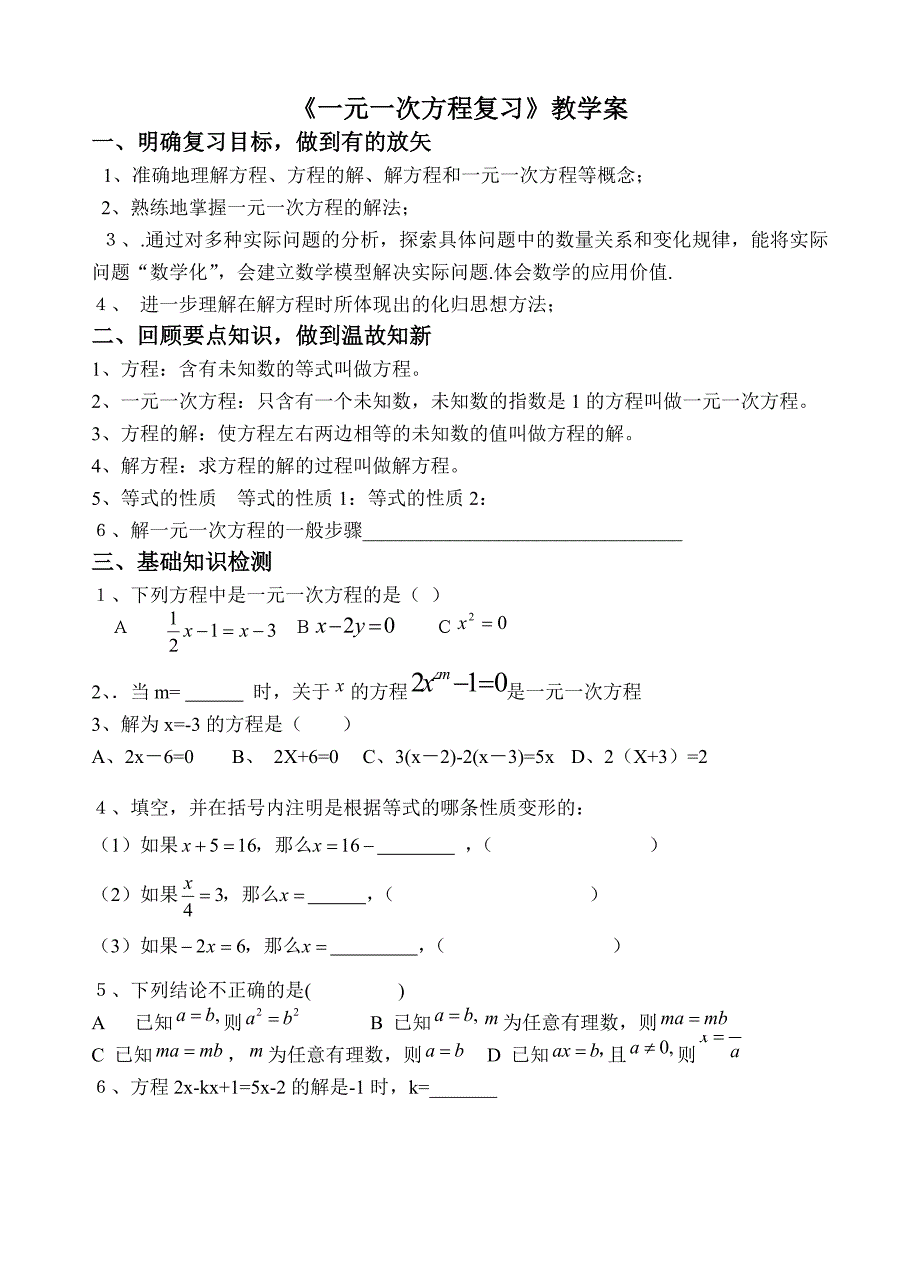 《一元一次方程复习》教学案
一、明确复习目标，做到有的放矢
1、准确地理解方程、方程的解、解方程和一元一次方程等概念；
2、熟练地掌握一元一次方程的解法；
３、.通过对多种实际问题的分析，探索具体问题中的数量关系和变化规律，能将实际
问题“数学化”，会建立数学模型解决实际问题.体会数学的应用价值.
４、 进一步理解在解方程时所体现出的化归思想方法；
二、回顾要点知识，做到温故知新
1、方程：含有未知数的等式叫做方程。
2、一元一次方程：只含有一个未知数，未知数的指数是 1 的方程叫做一元一次方程。
3、方程的解：使方程左右两边相等的未知数的值叫做方程的解。
4、解方程：求方程的解的过程叫做解方程。
5、等式的性质　等式的性质 1：等式的性质 2：
６、解一元一次方程的一般步骤________________________________
三、基础知识检测
１、下列方程中是一元一次方程的是（ ）
A　$\frac{1}{2}x-1=x-3$　B $x-2y=0$　C $x^2=0$
2、. 当 m= ______ 时，关于 $x$ 的方程 $2x^{2m}-1=0$ 是一元一次方程
3、解为 x=-3 的方程是（　　）
A、2x－6=0　B、 2X+6=0　C、3(x－2)-2(x－3)=5x　D、2（X+3）=2
４、填空，并在括号内注明是根据等式的哪条性质变形的：
（1）如果 $x+5=16$，那么 $x=16-$ ________ ，（　　　　　　　　）
（2）如果 $\frac{x}{4}=3$，那么 $x=$ ______，（　　　　　　　　　　）
（3）如果 $-2x=6$，那么 $x=$ _________，（　　　　　　　　　）
５、下列结论不正确的是(　　　　)
A　已知 $a=b,$ 则 $a^2=b^2$　B 已知 $a=b,$ $m$ 为任意有理数，则 $ma=mb$
C 已知 $ma=mb$，$m$ 为任意有理数，则 $a=b$　D 已知 $ax=b$，且 $a\neq 0,$ 则 x = — a
６、方程 2x-kx+1=5x-2 的解是-1 时，k=_______